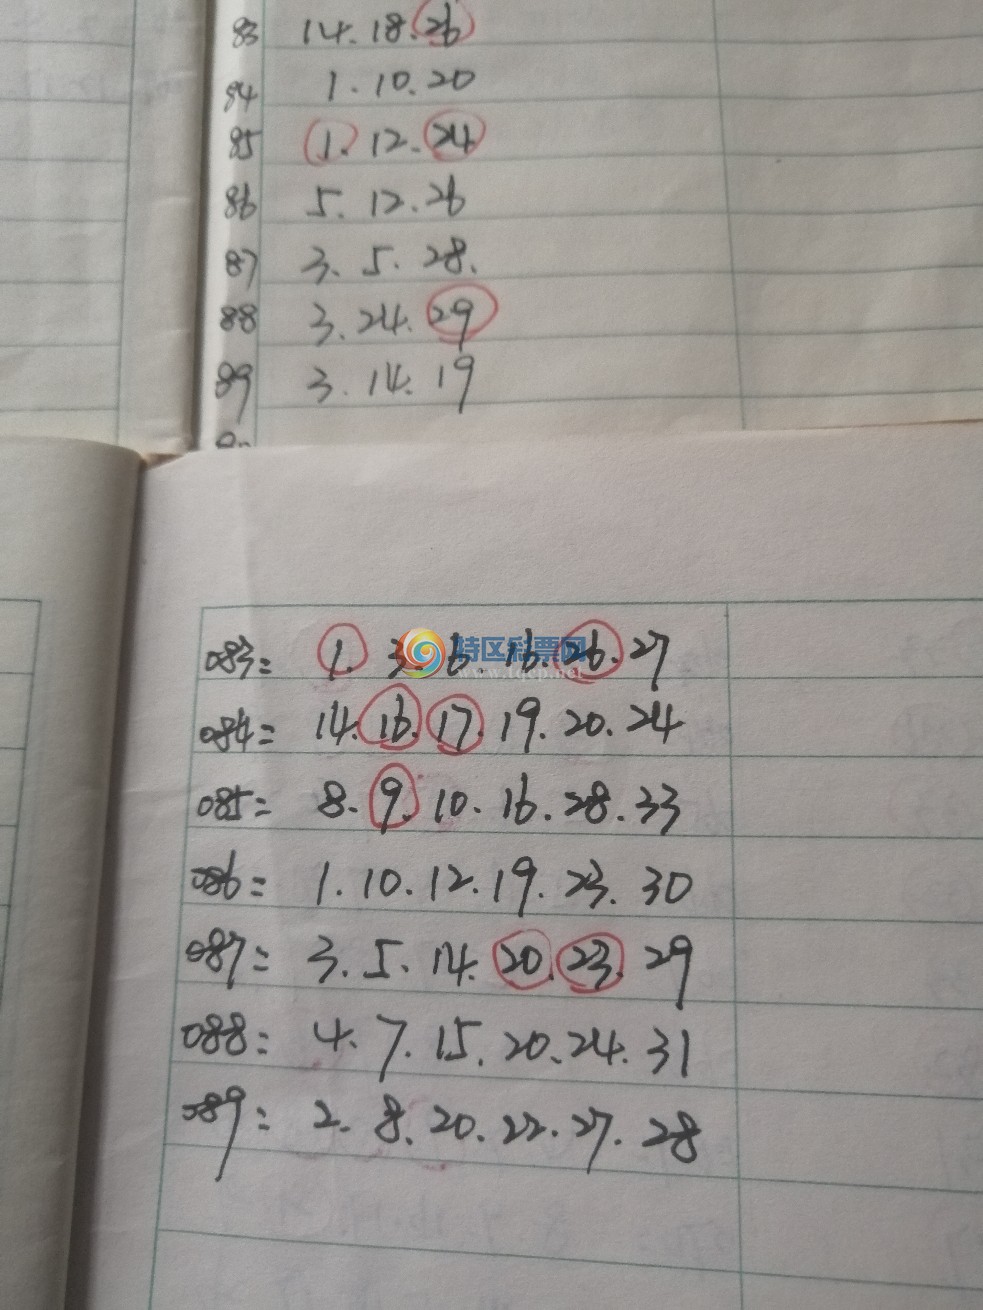 83 14. 18. 26
84 1. 10. 20
85 1. 12. 24
86 5. 12. 26
87 3. 5. 28.
88 3. 24. 29
89 3. 14. 19
083= 1. 3. 6. 16. 26. 27
特区彩票网
www.tqcp.net
084= 14. 16. 17. 19. 20. 24
085= 8. 9. 10. 16. 28. 33
086= 1. 10. 12. 19. 23. 30
087= 3. 5. 14. 20. 23. 29
088= 4. 7. 15. 20. 24. 31
089= 2. 8. 20. 22. 27. 28